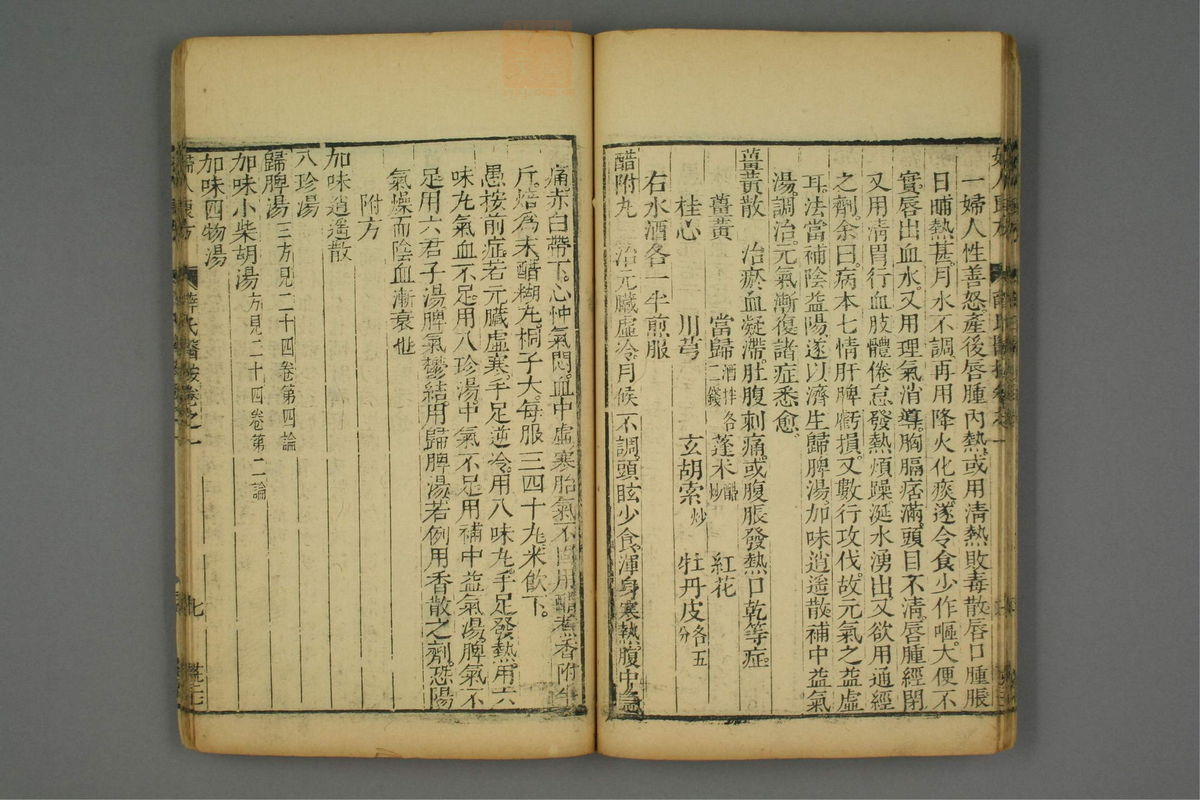 一婦人性善怒。產後唇腫內熱。或用清熱敗毒散。唇口腫脹
日晡熱甚。月水不調。再用降火化痰。遂令食少作嘔。大便不
實。唇出血水。又用理氣消導。胸膈痞滿。頭目不清。唇腫經閉
又用清胃行血。肢體倦怠。發熱煩躁。涎水湧出。又欲用通經
之劑。余曰。病本七情。肝脾虧損。又數行攻伐。故元氣之益虛
耳。法當補陰益陽。遂以濟生歸脾湯。加味逍遙散。補中益氣
湯。調治。元氣漸復。諸症悉愈。
薑黃散　治瘀血凝滯。肚腹刺痛。或腹脹發熱。口乾等症。
薑黃　當歸 酒拌各二錢　蓬朮 醋炒　紅花
桂心　川芎　玄胡索 炒　牡丹皮 各五分
右水酒各一半煎服
醋附丸　治元臟虛冷。月候不調。頭眩少食。渾身寒熱。腹中急
痛。赤白帶下。心忡氣悶。血中虛寒。胎氣不固。用醋煮香附
斤。焙爲末。醋糊丸。桐子大。每服三四十丸。米飲下。
愚按前症。若元臟虛寒。手足逆冷。用八味丸。手足發熱。用六
味丸。氣血不足。用八珍湯。中氣不足。用補中益氣湯。脾氣不
足。用六君子湯。脾氣鬱結。用歸脾湯。若例用香散之劑。恐陽
氣燥而陰血漸衰也
附方
加味逍遙散
八珍湯
歸脾湯 三方見二十四卷第四論
加味小柴胡湯 方見二十四卷第二論
加味四物湯
婦人良方　薛氏醫按卷之一　七